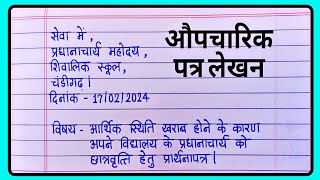 सेवा में,
प्रधानाचार्य महोदय,
शिवालिक स्कूल,
चंडीगढ़।
दिनांक - 17/02/2024
विषय - आर्थिक स्थिति खराब होने के कारण
अपने विद्यालय के प्रधानाचार्य को
छात्रवृत्ति हेतु प्रार्थनापत्र।
औपचारिक
पत्र लेखन